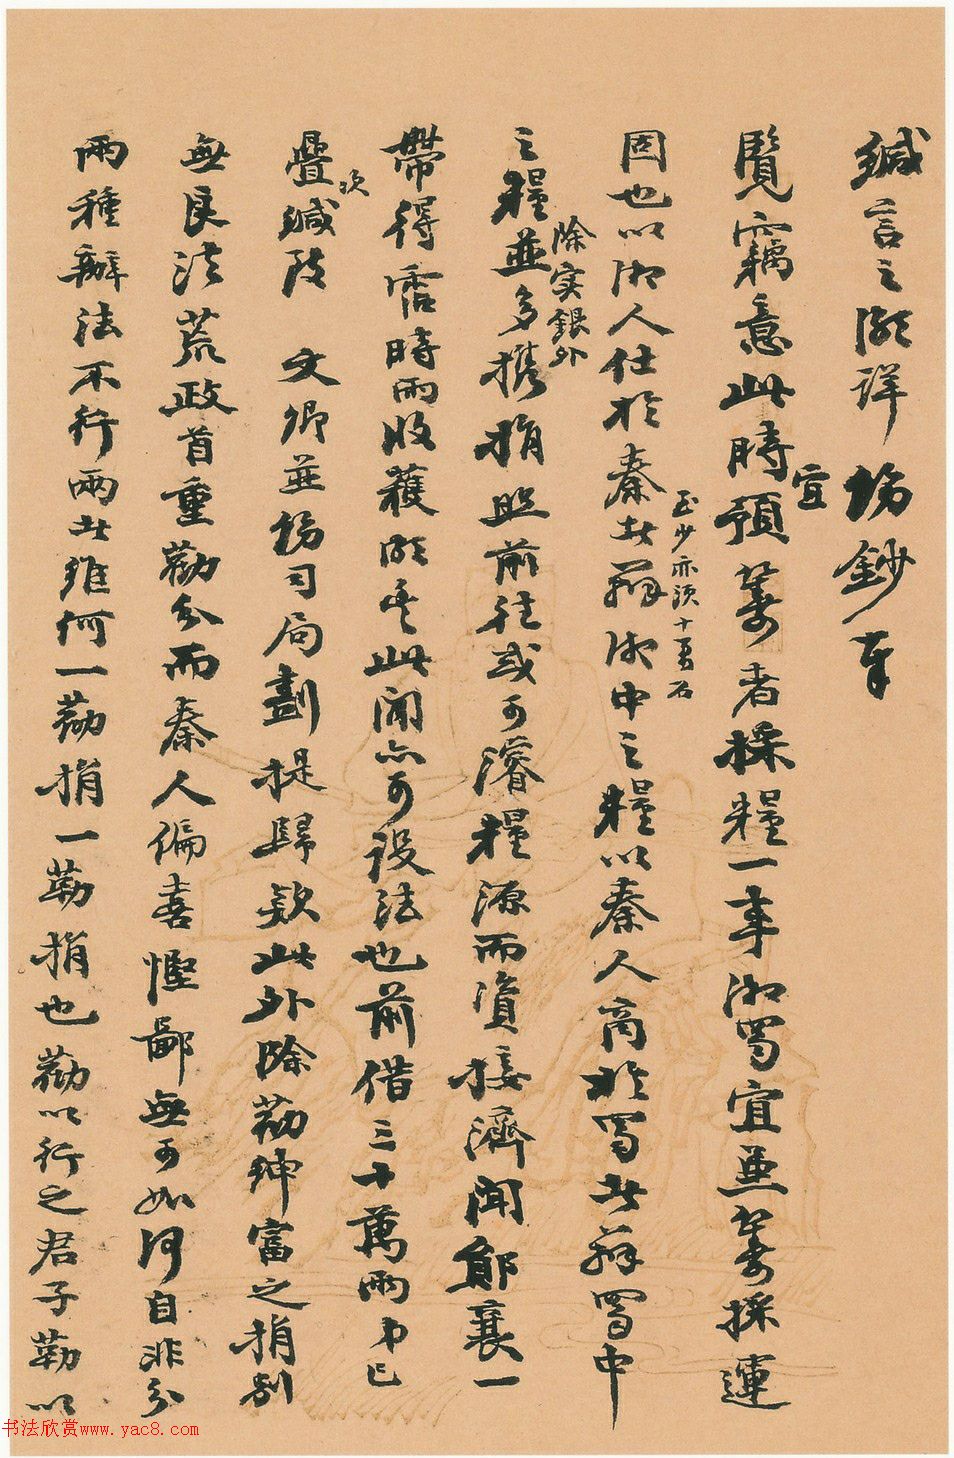 緘言之頗詳揚鈔奉
覽竊意此時預籌者採糧一事湘蜀宜並籌採運
宜
固也以湘人仕於秦者辦湘中之糧以秦人商於蜀者辦蜀中
至少亦須十萬石
之糧並多攜捐照前往或可濬糧源而資接濟聞鄖襄一
除實銀外
帶得霑時雨收穫頗豐此間亦可設法也前借三十萬兩弟已
疊緘致 文卿並揚司局劃提歸款此外除勸紳富之捐別
次
無良法荒政首重勸分而秦人偏喜慳鄙無可如何自非分
兩種辦法不行兩者維何一勸捐一勒捐也勸以行之君子勒以
书法欣赏www.yac8.com